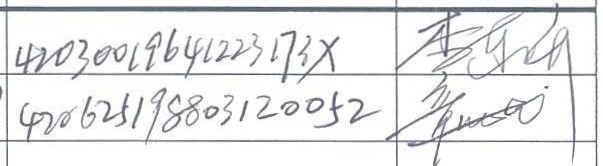 42030019641223173X 李
420625198803120052